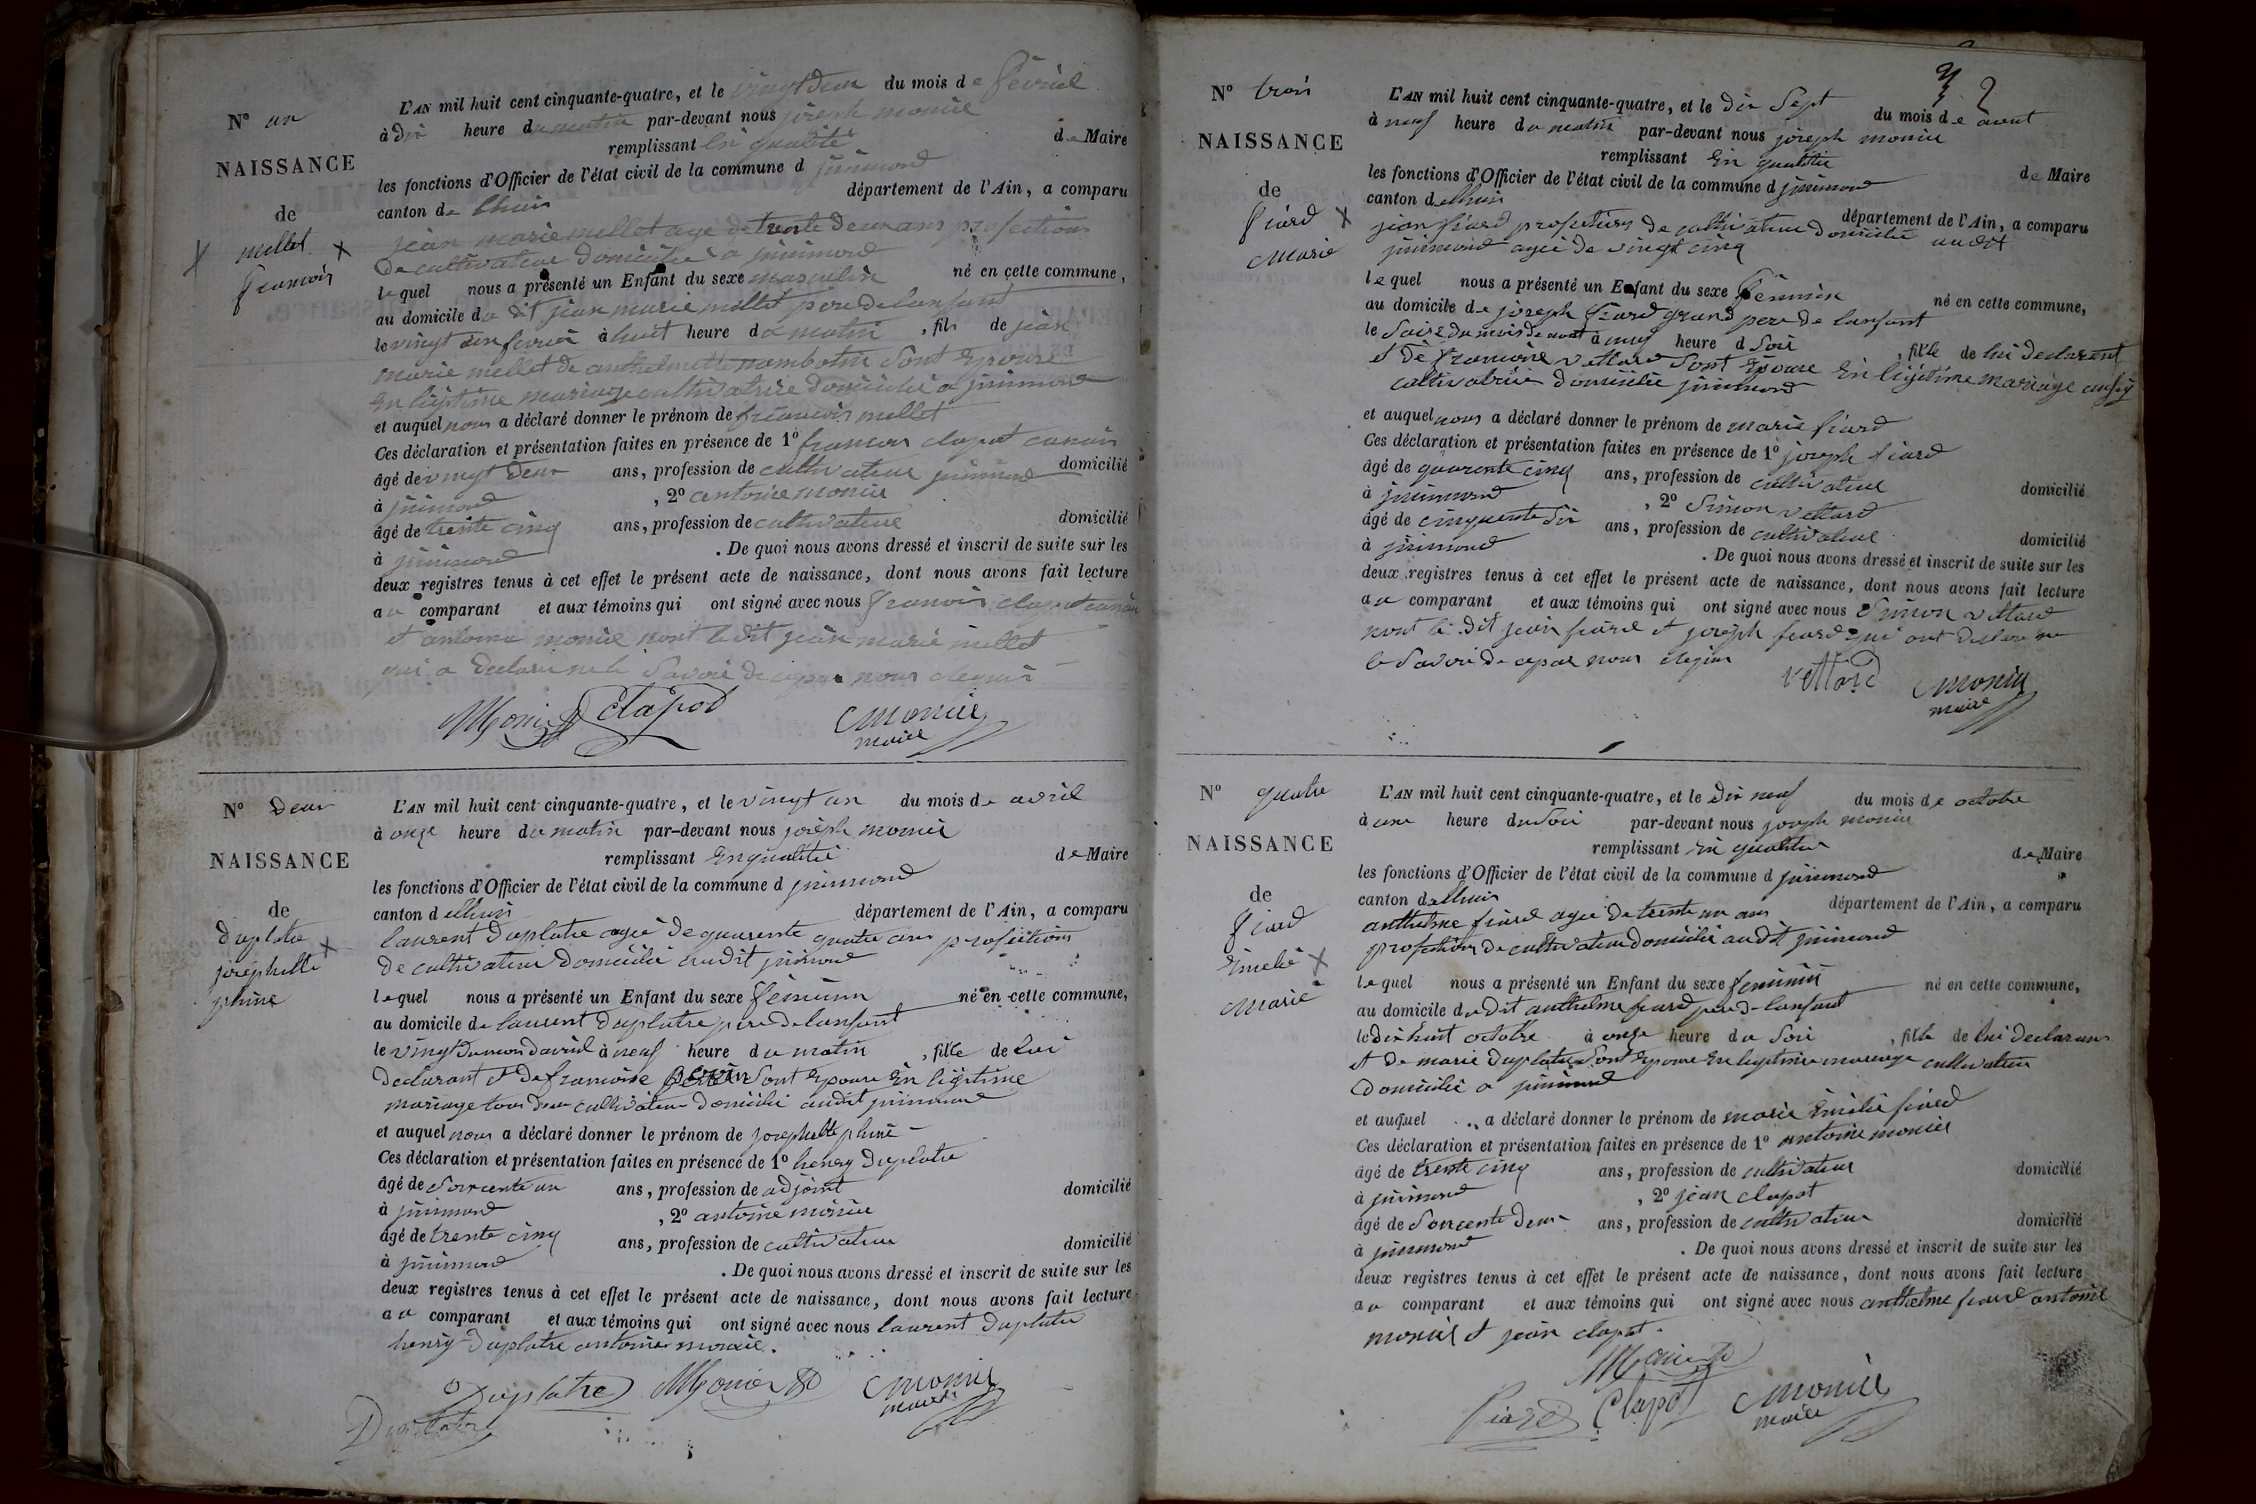 N° un
NAISSANCE
de
mellet
francois
L'AN mil huit cent cinquante-quatre, et le vingt deux du mois de fevriel
à dix heure du matin par-devant nous joseph moniè
remplissant en qualité de Maire
les fonctions d'Officier de l'état civil de la commune d jnimond
canton de lhuis département de l'Ain, a comparu
jean marie mellet agé de trente deux ans profections
de cultivateur domicilié a jnimond
lequel nous a présenté un Enfant du sexe masculin né en cette commune,
au domicile du dit jean marie mellet pere de lanfant
le vingt deux fevriè à huit heure du matin, fils de jean
marie mellet de anthelmette sont epouse
en légitime mariage cultivatrice domicilié a jnimond
et auquel nous a déclaré donner le prénom de francois mellet
Ces déclaration et présentation faites en présence de 1° francois clapot
âgé de vingt deux ans, profession de cultivateur jnimond domicilié
à jnimond, 2° antoine moniè
âgé de trente cinq ans, profession de cultivateur domicilié
à jnimond. De quoi nous avons dressé et inscrit de suite sur les
deux registres tenus à cet effet le présent acte de naissance, dont nous avons fait lecture
au comparant et aux témoins qui ont signé avec nous francois clapot
et antoine moniè nont le dit jean marie mellet
qui a declaré ne le savoir de ce par nous
Monier Clapot moniè
maire
N° deux
NAISSANCE
de
duplatre
josephette
phine
L'AN mil huit cent cinquante-quatre, et le vingt un du mois de avril
à onze heure du matin par-devant nous joseph moniè
remplissant en qualité de Maire
les fonctions d'Officier de l'état civil de la commune d jnimond
canton d elhuis département de l'Ain, a comparu
laurent duplatre agé de quarente quatre ans profections
de cultivateur domicilié audit jnimond
lequel nous a présenté un Enfant du sexe féminin né en cette commune,
au domicile de laurent duplatre pere de lanfant
le vingt du mois davril à neuf heure du matin, fille de lui
declarant et de francoise sont epouse en légitime
mariage tous deux cultivateur domicilié audit jnimond
et auquel nous a déclaré donner le prénom de josephette phine
Ces déclaration et présentation faites en présence de 1° henry duplatre
âgé de soixcente un ans, profession de adjoint domicilié
à jnimond, 2° antoine moniè
âgé de trente cinq ans, profession de cultivateur domicilié
à jnimond. De quoi nous avons dressé et inscrit de suite sur les
deux registres tenus à cet effet le présent acte de naissance, dont nous avons fait lecture
au comparant et aux témoins qui ont signé avec nous laurent duplatre
henry duplatre antoine moniè.
Duplatre Monier moniè
maire
Duplatre
3 2
N° trois
NAISSANCE
de
fiard
marie
L'AN mil huit cent cinquante-quatre, et le dix sept du mois de aout
à neuf heure du matin par-devant nous joseph moniè
remplissant en qualité de Maire
les fonctions d'Officier de l'état civil de la commune d jnimond
canton delhuis département de l'Ain, a comparu
jean fiard profections de cultivateur domicilié audit
jnimond agé de vingt cinq
lequel nous a présenté un Enfant du sexe féminin né en cette commune,
au domicile de joseph fiard grand pere de lanfant
le saize du mois de aout à neuf heure d soir, fille de lui declarent
et de francoise vettard sont epouse en légitime mariage
cultivatrice domicilié jnimond
et auquel nous a déclaré donner le prénom de marie fiard
Ces déclaration et présentation faites en présence de 1° joseph fiard
âgé de quarente cinq ans, profession de cultivateur domicilié
à jnimond, 2° Simon vettard
âgé de cinquente six ans, profession de cultivateur domicilié
à jnimond. De quoi nous avons dressé et inscrit de suite sur les
deux registres tenus à cet effet le présent acte de naissance, dont nous avons fait lecture
au comparant et aux témoins qui ont signé avec nous Simon vettard
nont le dit jean fiard et joseph fiard qui ont declaré ne
le savoir de ce par nous
vettard moniè
maire
N° quatre
NAISSANCE
de
fiard
Emelie
marie
L'AN mil huit cent cinquante-quatre, et le dix neuf du mois de octobre
à une heure du soir par-devant nous joseph moniè
remplissant en qualité de Maire
les fonctions d'Officier de l'état civil de la commune d jnimond
canton delhuis département de l'Ain, a comparu
anthelme fiard agé de trente un ans
profections de cultivateur domicilié audit jnimond
lequel nous a présenté un Enfant du sexe feminin né en cette commune,
au domicile du dit anthelme fiard pere de lanfant
le dix huit octobre à onze heure du soir, fille de lui declarans
et de marie duplatre sont epouse en legitime mariage cultivateur
domicilié a jnimond
et auquel a déclaré donner le prénom de marie Emelie fiard
Ces déclaration et présentation faites en présence de 1° antoine moniè
âgé de trente cinq ans, profession de cultivateur domicilié
à jnimond, 2° jean clapot
âgé de soixcente deux ans, profession de cultivateur domicilié
à jnimond. De quoi nous avons dressé et inscrit de suite sur les
deux registres tenus à cet effet le présent acte de naissance, dont nous avons fait lecture
au comparant et aux témoins qui ont signé avec nous anthelme fiard antoine
moniè et jean clapot.
Monier
fiard Clapot moniè
maire